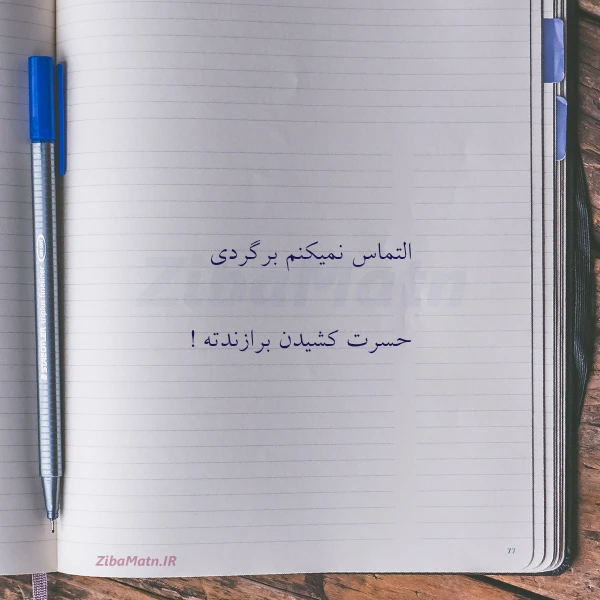 التماس نمیکنم برگردی
ZibaMatn
حسرت کشیدن برازندته !
77
ZibaMatn.IR